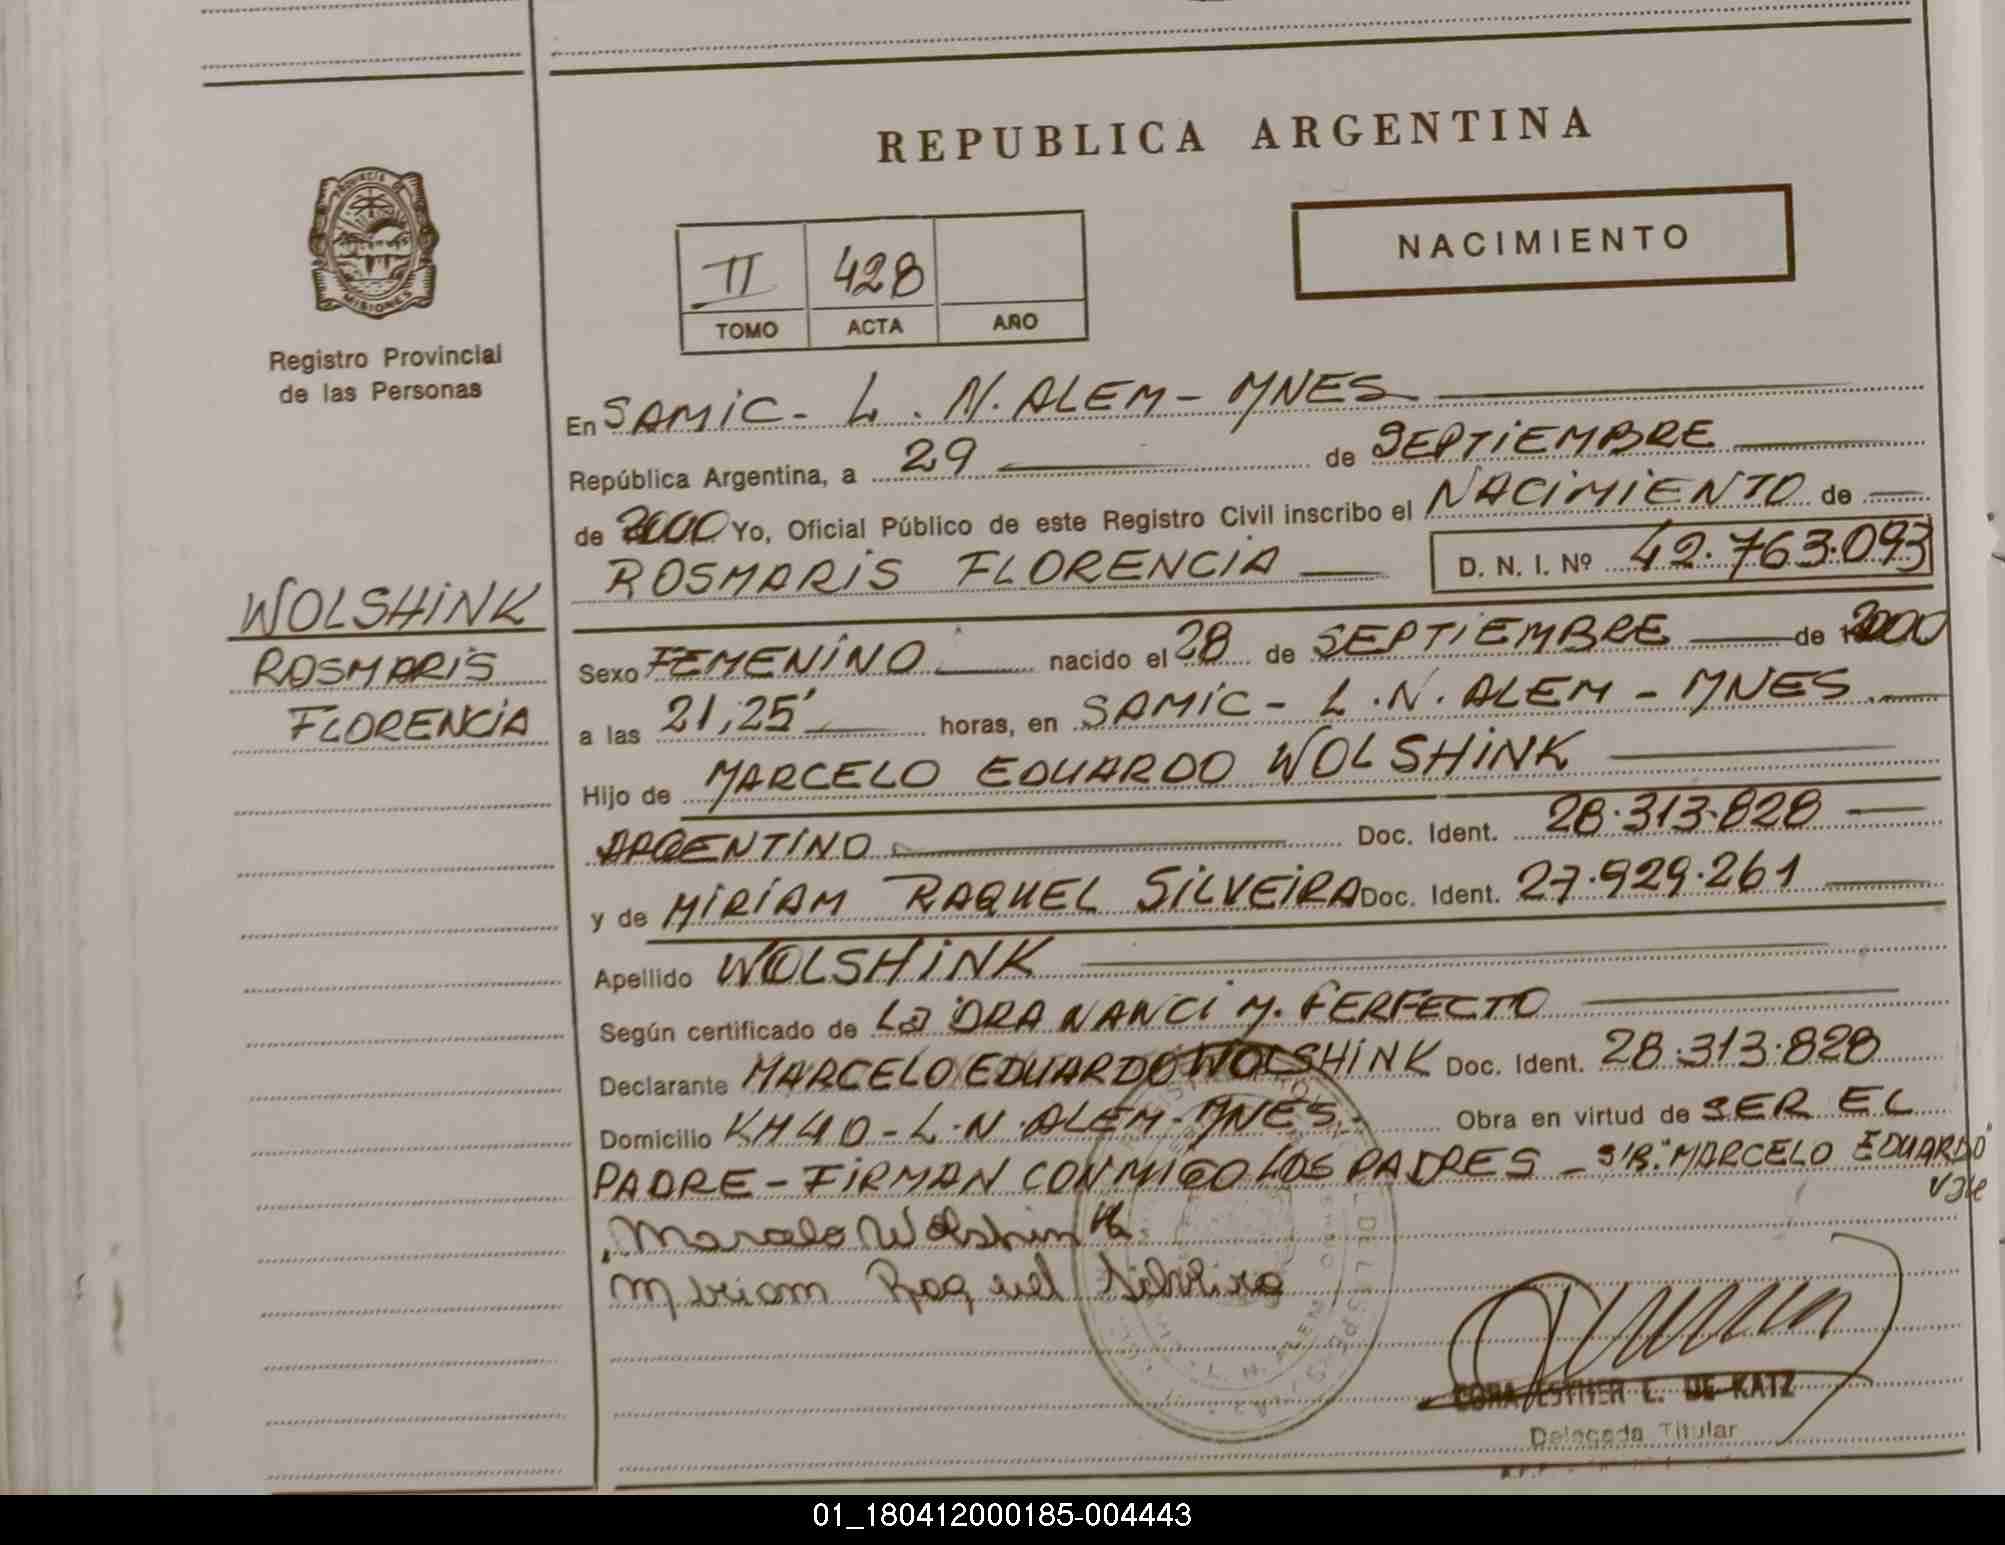 REPUBLICA ARGENTINA
NACIMIENTO
II 428
TOMO ACTA AÑO
PROVINCIA DE
MISIONES
Registro Provincial
de las Personas
WOLSHINK
ROSMARIS
FLORENCIA
En SAMIC - L. N. ALEM - MNES
República Argentina, a 29 de SEPTIEMBRE
de 2000 Yo, Oficial Público de este Registro Civil inscribo el NACIMIENTO de
ROSMARIS FLORENCIA D. N. I. Nº 42.763.093
Sexo FEMENINO nacido el 28 de SEPTIEMBRE de 2000
a las 21,25' horas, en SAMIC - L. N. ALEM - MNES
Hijo de MARCELO EDUARDO WOLSHINK
ARGENTINO Doc. Ident. 28.313.828
y de MIRIAM RAQUEL SILVEIRA Doc. Ident. 27.929.261
Apellido WOLSHINK
Según certificado de La DRA NANCI M. FERFECTO
Declarante MARCELO EDUARDO WOLSHINK Doc. Ident. 28.313.828
Domicilio KM 40 - L. N. ALEM - MNES. Obra en virtud de SER EL
PADRE - FIRMAN CONMIGO LOS PADRES - S/R. "MARCELO EDUARDO"
Vale
Marcelo Wolshink
Miriam Raquel Silveira
CORA ESTHER L. DE KATZ
Delegada Titular
01_180412000185-004443